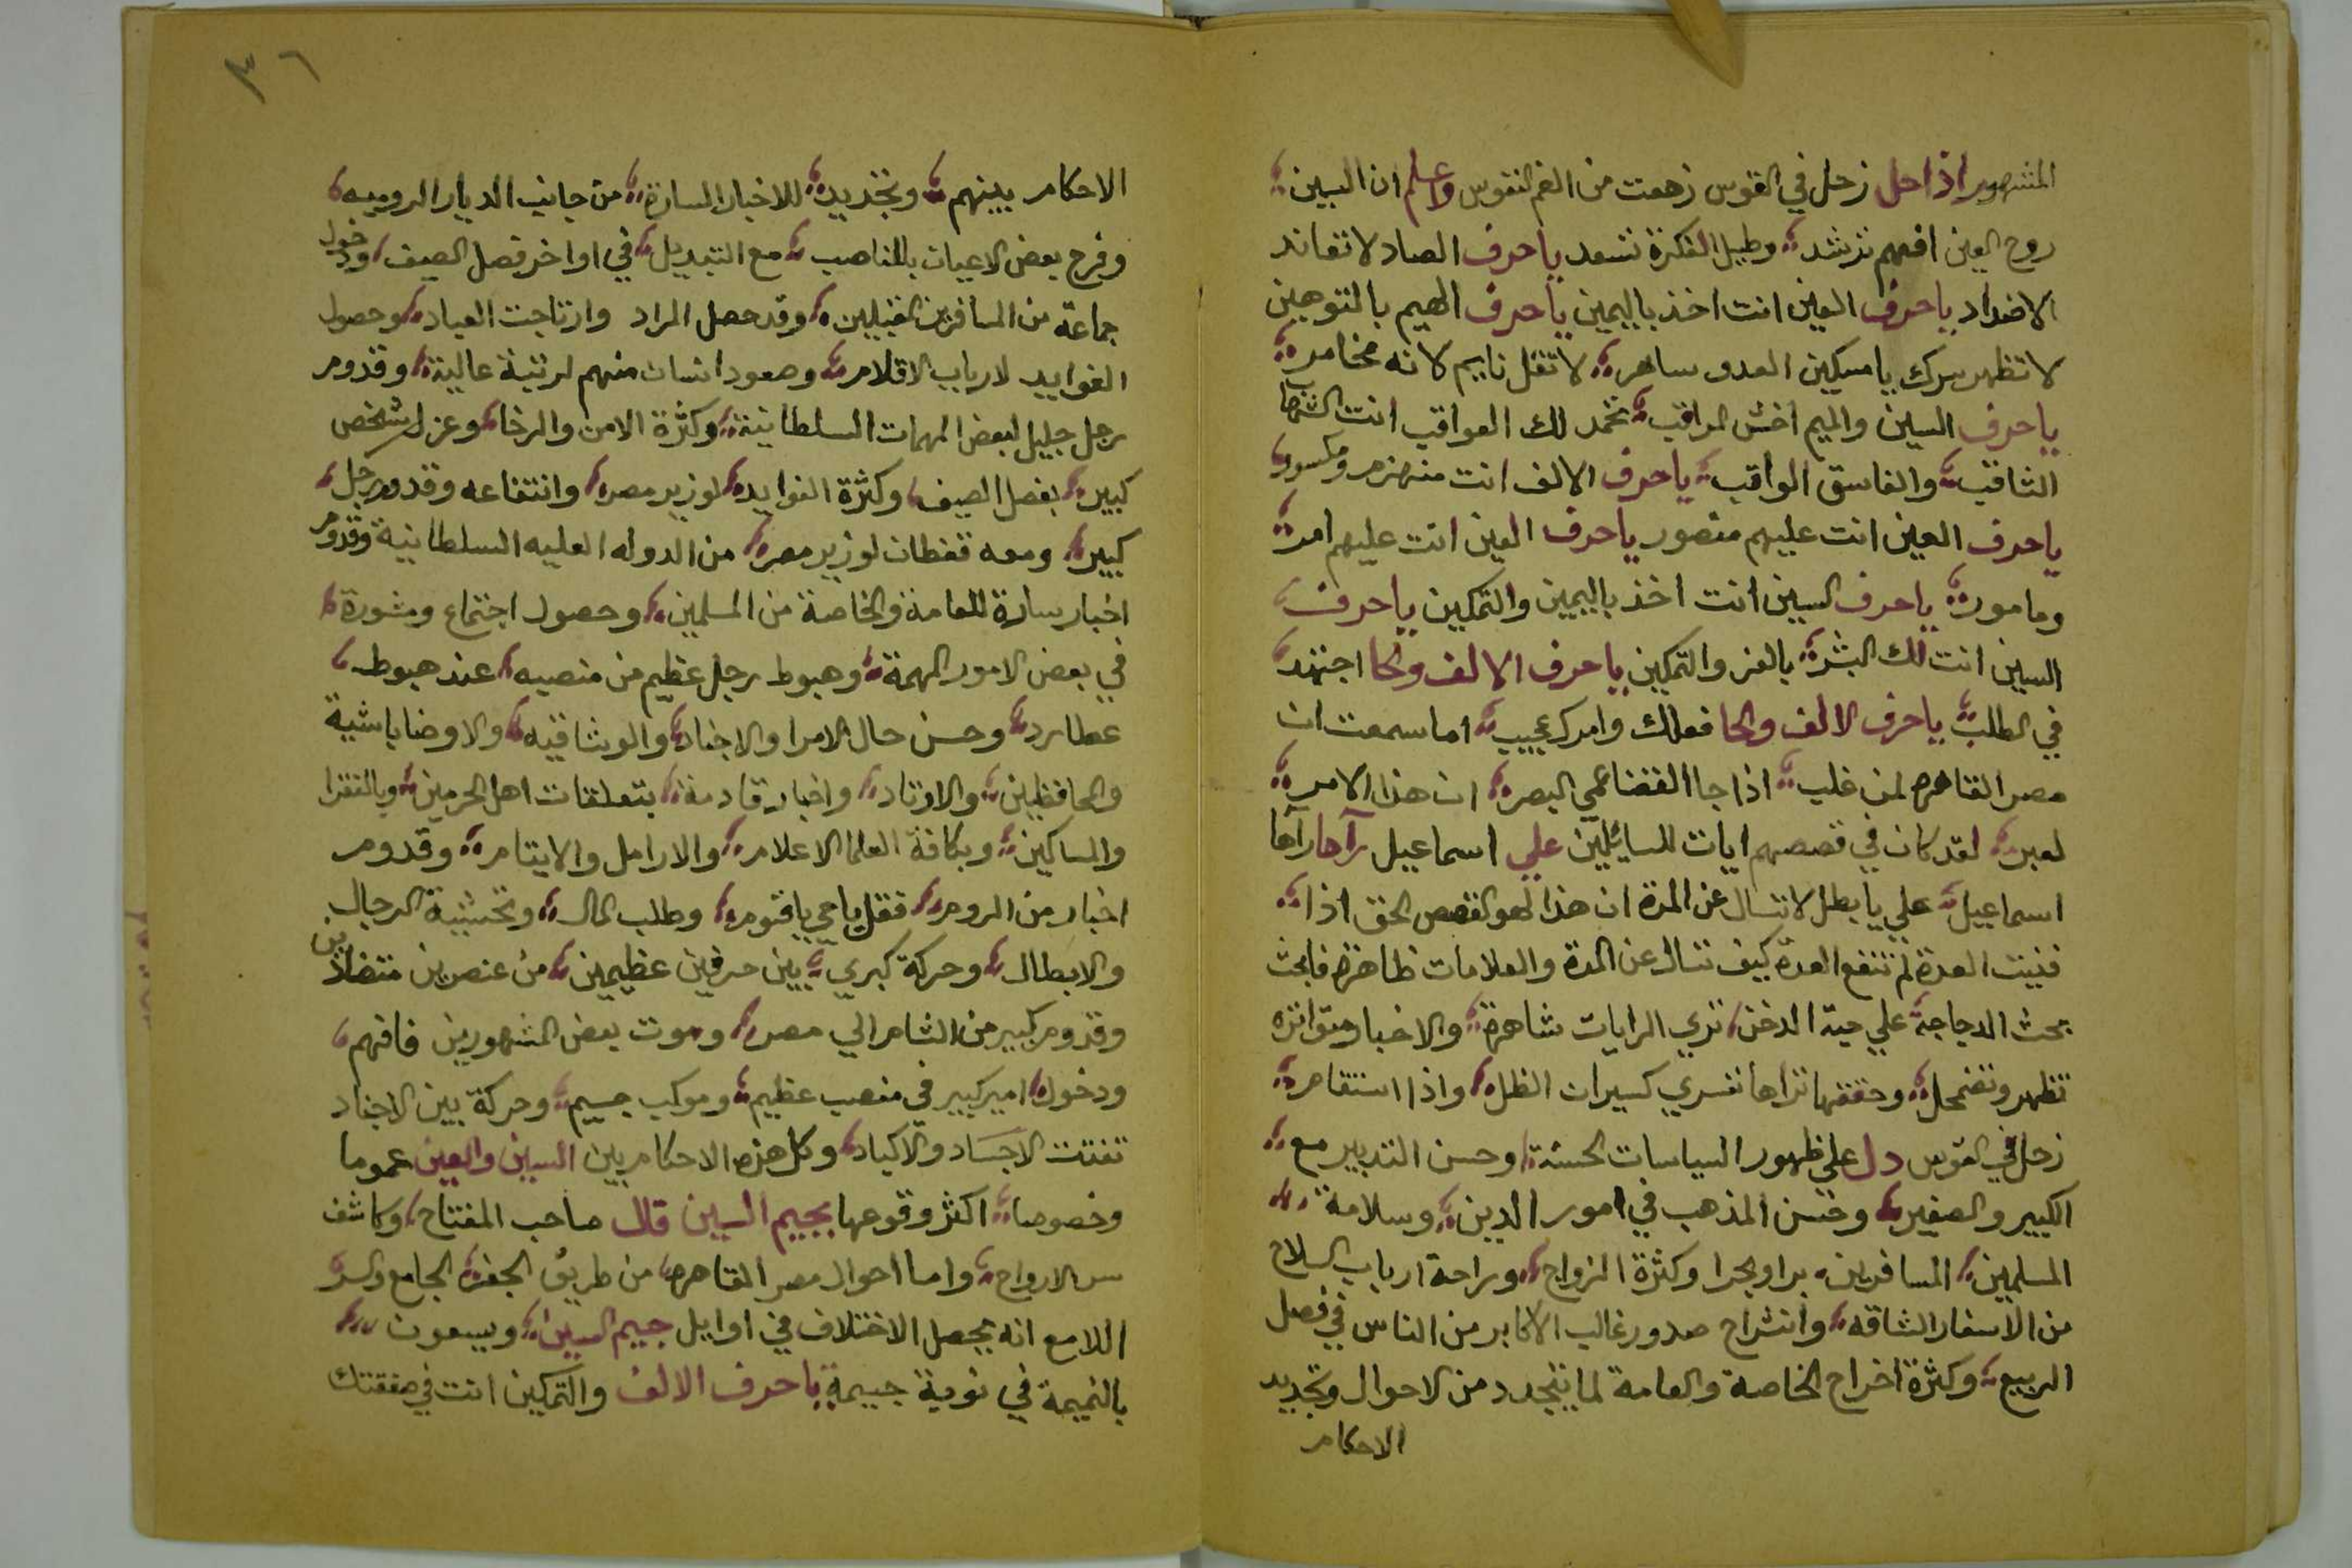 المشهور اذا حل زحل في القوس زهعت من الغم النفوس واعلم ان السين
روح العين افهم ترشد وطيل الفكرة تسعد يا حرف الصاد لا تعاند
الاضداد يا حرف العين انت اخذ باليمين يا حرف الميم بالتوجين
لا تظهر سرك يا مسكين العدو ساهر لا تقل نايم لانه مخامر
يا حرف السين والميم اخش المراقب تحمد لك العواقب انت الشهاب
الثاقب والغاسق الواقب يا حرف الالف انت منهزم ومكسور
يا حرف العين انت عليهم منصور يا حرف العين انت عليهم امر
ومامور يا حرف السين انت اخذ باليمين والتمكين يا حرف
السين انت لك البشر بالعز والتمكين يا حرف الالف والحا اجتهد
في الطلب يا حرف الالف والحا فعلك وامرك عجيب اما سمعت ان
مصر القاهره لمن غلب اذا جا القضا عمي البصر ان هذا الامر
لعبر لقد كان في قصصهم ايات للسايلين علي اسماعيل رآها رآها
اسماعيل علي يا بطل لا تسال عن المدة ان هذا لهو القصص الحق اذا
فنيت العدة لم تنفع العدة كيف تسال عن المدة والعلامات ظاهرة فابحث
بحث الدجاجة علي حبة الدخن تري الرايات شاهرة والاخبار متواتره
تظهر وتضمحل وحققها تراها تسري كسيرات الظل واذا استقام
زحل في القوس دل علي ظهور السياسات الحسنة وحسن التدبير مع
الكبير والصغير وحسن المذهب في امور الدين وسلامة
المسلمين المسافرين برا وبحرا وكثرة الزواج وراحة ارباب السلاح
من الاسفار الشاقه وانشراح صدور غالب الاكابر من الناس في فصل
الربيع وكثرة اخراج الخاصة والعامة لما يتجدد من الاحوال وتجديد
الاحكام
٣٦
الاحكام بينهم وتجديد للاخبار السارة من جانب الديار الروميه
وفرح بعض الاعيان بالمناصب مع التبديل في اواخر فصل الصيف ودخول
جماعة من المسافرين المقبلين وقد حصل المراد وارتاحت العباد وحصول
الفوايد لارباب الاقلام وصعود انسان منهم لرتبة عالية وقدوم
رجل جليل لبعض المهمات السلطانية وكثرة الامن والرخا وعزل شخص
كبير بفصل الصيف وكثرة الفوايد لوزير مصر وانتفاعه وقدوم رجل
كبير ومعه قفطان لوزير مصر من الدوله العليه السلطانية وقدوم
اخبار سارة للعامة والخاصة من المسلمين وحصول اجتماع ومشورة
في بعض الامور المهمة وهبوط رجل عظيم من منصبه عند هبوط
عطارد وحسن حال الامرا والاجناد والوشاقيه والاوضاباشية
والحافظين والاوتاد واخبار قادمة بتعلقات اهل الحرمين وبالفقرا
والمساكين وبكافة العلما الاعلام والارامل والايتام وقدوم
اخبار من الروم فقل يا حي يا قيوم وطلب المال وتحشية الرجال
والابطال وحركة كبري بين حرفين عظيمين من عنصرين متضادين
وقدوم كبير من الشام الي مصر وموت بعض المشهورين فافهم
ودخول امير كبير في منصب عظيم وموكب جسيم وحركة بين الاجناد
تفتت الاجساد والاكباد وكل هذه الاحكام بين السين والعين عموما
وخصوصا اكثر وقوعها بجيم السين قال صاحب المفتاح وكاشف
سر الارواح واما احوال مصر القاهره من طريق الجفر الجامع والسر
اللامع انه يحصل الاختلاف في اوايل جيم السين ويسعون
بالنميمة في نوبة جسيمة يا حرف الالف والتمكين انت في صفقتك